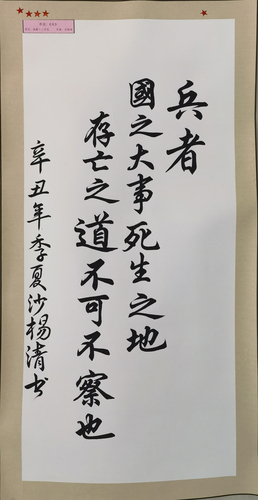 兵者
國之大事死生之地
存亡之道不可不察也
辛丑年季夏沙楊清书